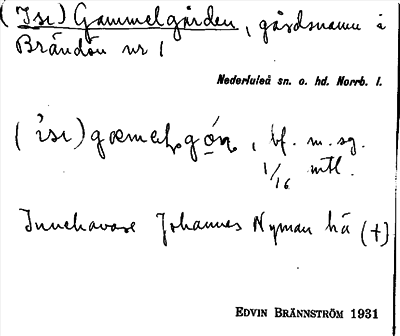 (Isı) Gammelgården, gårdsnamn å
Brändön nr 1
Nederluleå sn. o. hd. Norrb. l.
bf. m. sg.
1/16 mtl.
Innehavare Johannes Nyman hä (+)
EDVIN BRÄNNSTRÖM 1931